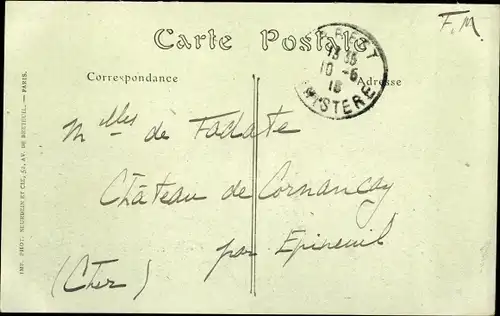 F.M.
Carte Postale
BREST
13 35
10 -6
18
FINISTERE
Correspondance
Adresse
Melles de Tadate
Château de Cornançay
par Epineuil
(Cher)
IMP. PHOT. NEURDEIN ET CIE, 52, AV. DE BRETEUIL. — PARIS.